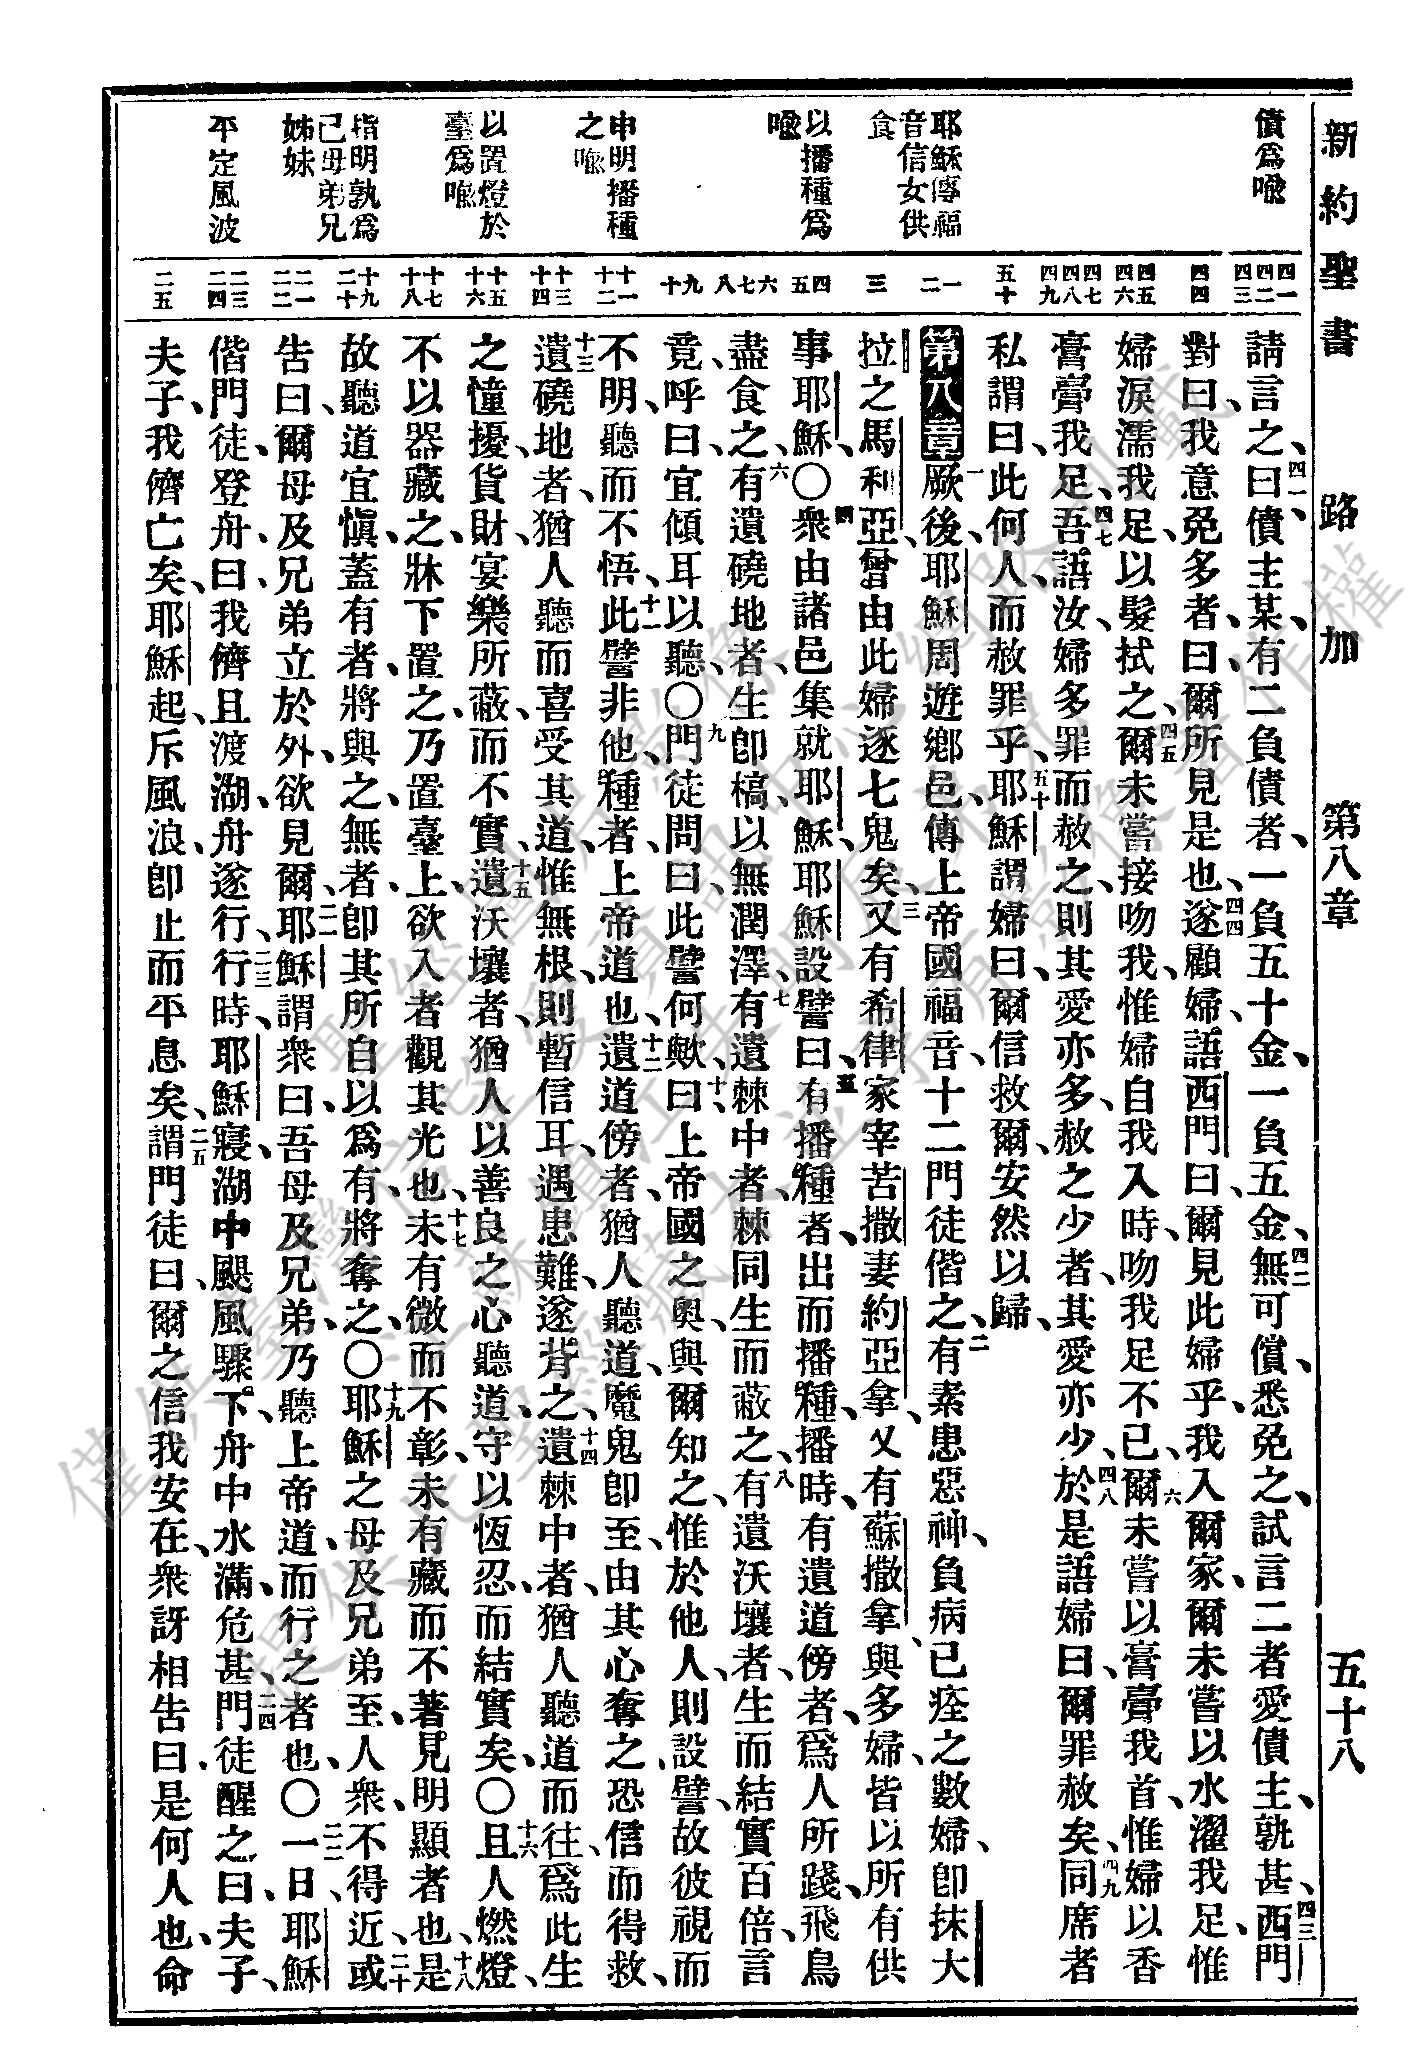 新約聖書 路加 第八章 五十八
債爲喩
耶穌傳福
音信女供
食
以播種爲
喩
申明播種
之喩
以置燈於
臺爲喩
指明孰爲
己母弟兄
姊妹
平定風波
四一 四二 四三
四四
四五 四六
四七 四八 四九
五十
一 二
三
四 五
六 七 八
九 十
十一 十二
十三 十四
十五 十六
十七 十八
十九 二十
二一 二二
二三 二四
二五
請言之、曰、四一債主某、有二負債者、一負五十金、一負五金、四二無可償、悉免之、試言二者愛債主孰甚、四三西門
對曰、我意免多者、曰、爾所見是也、四四遂顧婦語西門曰、爾見此婦乎、我入爾家、爾未嘗以水濯我足、惟
婦淚濡我足、以髮拭之、四五爾未嘗接吻我、惟婦自我入時、吻我足不已、四六爾未嘗以膏膏我首、惟婦以香
膏膏我足、四七吾語汝、婦多罪而赦之、則其愛亦多、赦之少者、其愛亦少、四八於是語婦曰、爾罪赦矣、四九同席者
私謂曰、此何人、而赦罪乎、五十耶穌謂婦曰、爾信救爾、安然以歸、
第八章 一厥後、耶穌周遊鄉邑、傳上帝國福音、十二門徒偕之、二有素患惡神、負病已痊之數婦、卽抹大
拉之馬利亞、曾由此婦逐七鬼矣、三又有希律家宰苦撒妻約亞拿、又有蘇撒拿、與多婦、皆以所有供
事耶穌、〇四衆由諸邑集就耶穌、耶穌設譬曰、五有播種者、出而播種、播時、有遺道傍者、爲人所踐、飛鳥
盡食之、六有遺磽地者、生卽槁、以無潤澤、七有遺棘中者、棘同生而蔽之、八有遺沃壤者、生而結實百倍、言
竟、呼曰、宜傾耳以聽、〇九門徒問曰、此譬何歟、十曰、上帝國之奧、與爾知之、惟於他人、則設譬、故彼視而
不明、聽而不悟、十一此譬非他、種者、上帝道也、十二遺道傍者、猶人聽道、魔鬼卽至、由其心奪之、恐信而得救、
十三遺磽地者、猶人聽而喜受其道、惟無根、則暫信耳、遇患難、遂背之、十四遺棘中者、猶人聽道而往、爲此生
之憧擾、貨財、宴樂所蔽、而不實、十五遺沃壤者、猶人以善良之心聽道、守以恆忍、而結實矣、〇十六且人燃燈、
不以器藏之、牀下置之、乃置臺上、欲入者觀其光也、十七未有微而不彰、未有藏而不著見明顯者也、十八是
故、聽道宜愼、蓋有者、將與之、無者、卽其所自以爲有、將奪之、〇十九耶穌之母及兄弟至、人衆、不得近、二十或
告曰、爾母及兄弟立於外、欲見爾、二一耶穌謂衆曰、吾母及兄弟、乃聽上帝道、而行之者也、〇二二一日、耶穌
偕門徒、登舟、曰、我儕且渡湖、舟遂行、二三行時、耶穌寢、湖中颶風驟下、舟中水滿、危甚、二四門徒醒之曰、夫子、
夫子、我儕亡矣、耶穌起、斥風浪、卽止而平息矣、二五謂門徒曰、爾之信我安在、衆訝相告曰、是何人也、命
僅供臺灣信望愛資訊中心網路刊載